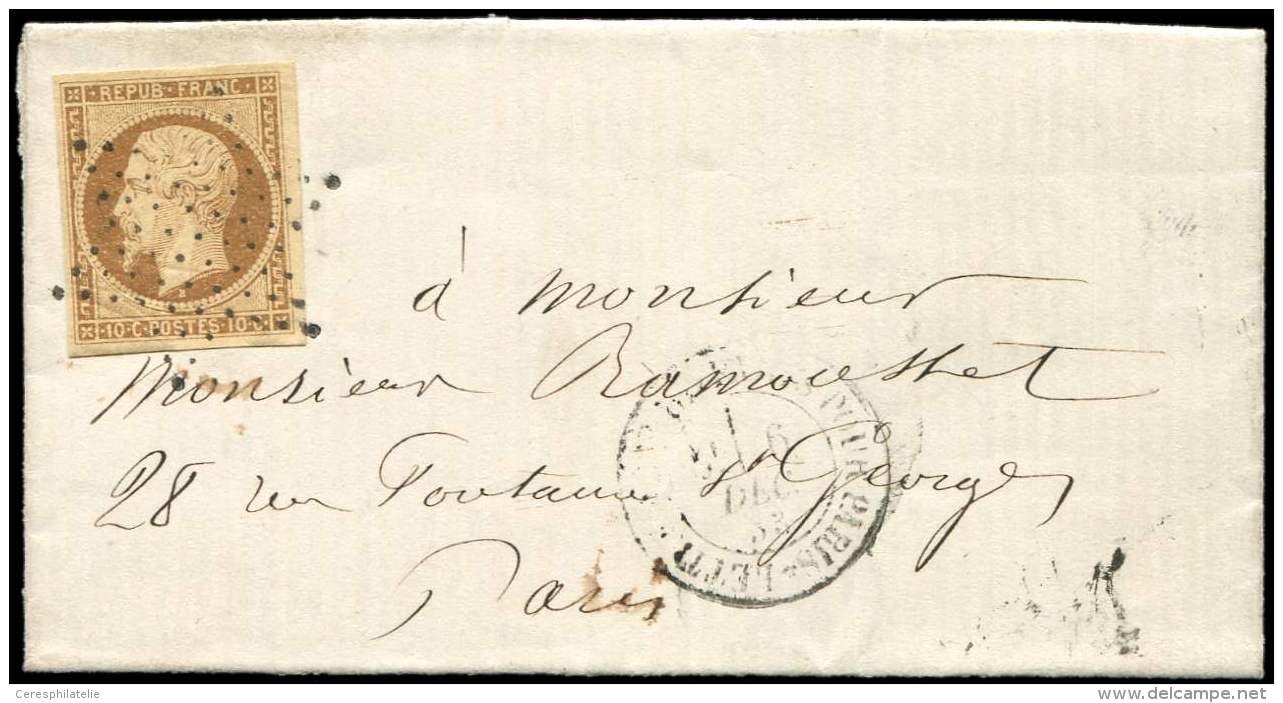 REPUB·FRANC·
B
10·C·POSTES·10·C·
à Monsieur
Monsieur Ramousset
28 rue Fontaine St Georges
Paris
6
DEC
POUR PARIS
Ceresphilatelie
www.delcampe.net